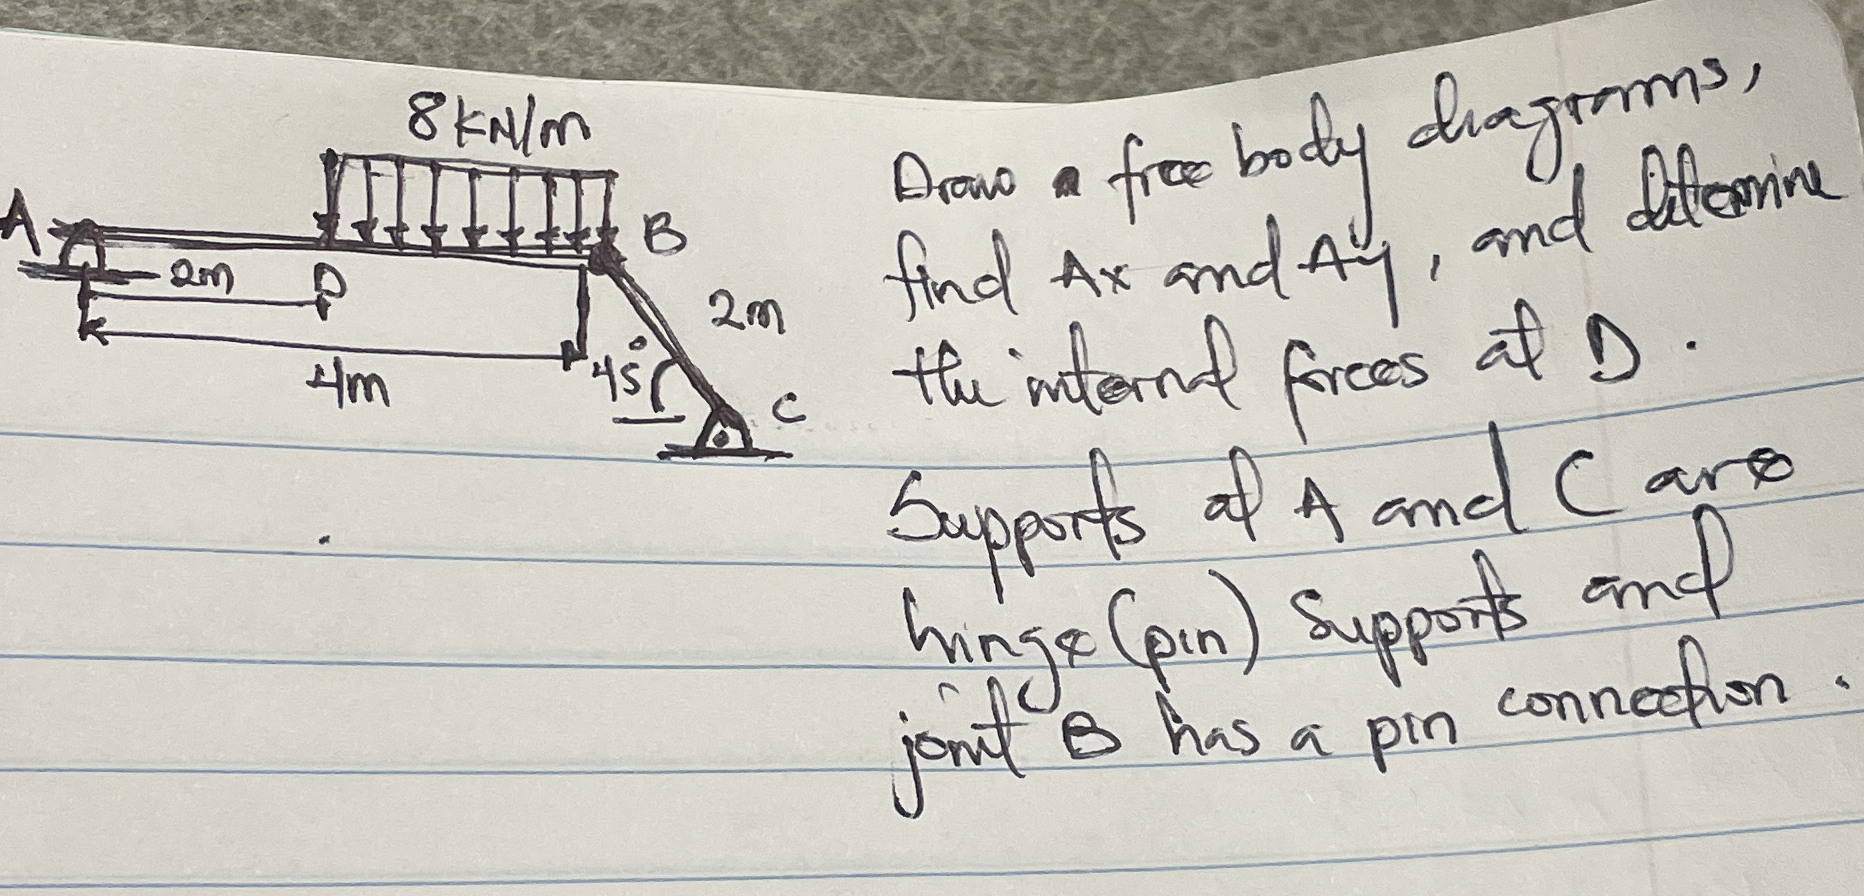 8KN/m
A
B
2m
D
2m
4m
45°
C
Draw a free body diagrams,
find Ax and Ay, and ditermine
the internal forces at D.
Supports at A and C are
hinge (pin) Supports and
joint B has a pin connection.